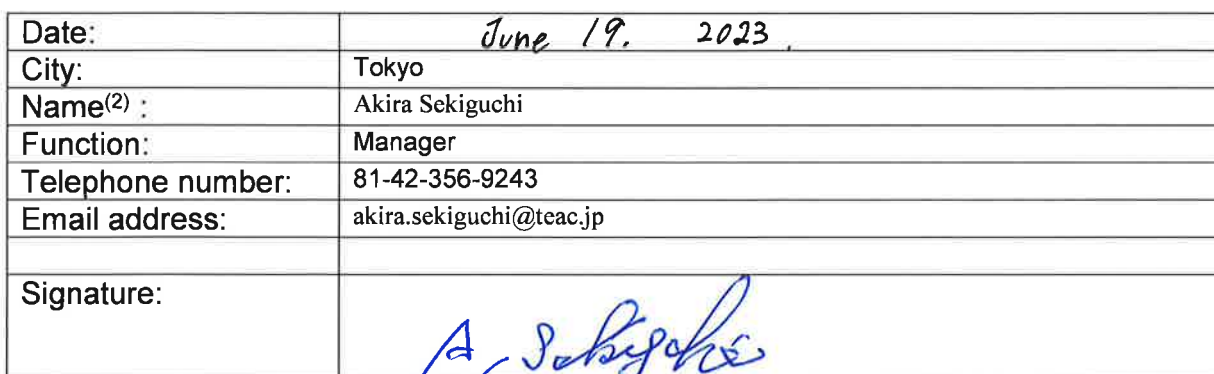 Date: June 19. 2023.
City: Tokyo
Name(2) : Akira Sekiguchi
Function: Manager
Telephone number: 81-42-356-9243
Email address: akira.sekiguchi@teac.jp
Signature: A. Sekiguchi